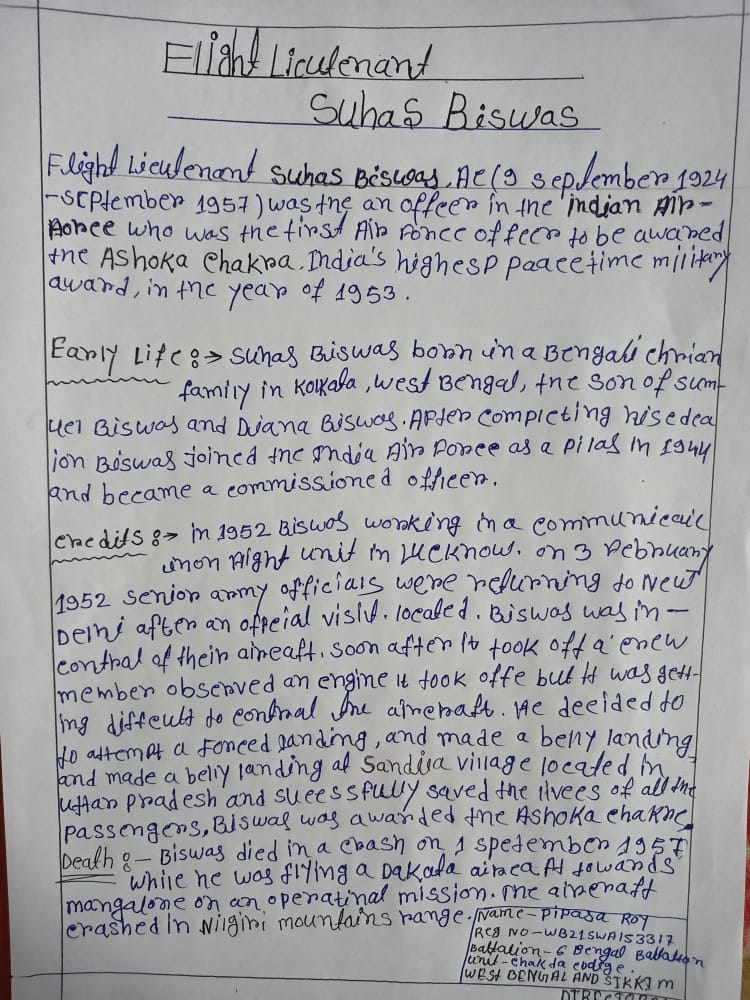 Flight Lieutenant
Suhas Biswas
Flight Lieutenant Suhas Biswas, AC (9 september 1924
-september 1957) was the an offcer in the indian Air-
Force who was the first Air Force offcer to be awared
the Ashoka Chakra. India's highesp paacetime military
award, in the year of 1953.
Early Life :→ Suhas Biswas born in a Bengali chrian
family in Kolkata, west Bengal, the son of sum-
uel Biswas and Diana Biswas. After completing his edca
ion Biswas joined the India Air Force as a pilas in 1944
and became a commissioned officer.
credits :→ in 1952 Biswas working in a communicaic
unon flight unit in Lucknow. on 3 February
1952 senior army officials were returning to New
Delhi after an offcial visit. located. Biswas was in-
contral of their aircaft. soon after it took off a crew
member observed an engine it took offe but it was gett-
ing diffcult to contral the aircraft. He decided to
to attempt a forced landing, and made a belly landing
and made a belly landing at Sandila village located in
uttar pradesh and sucessfully saved the livees of all the
passengers, Biswas was awarded the Ashoka chakre.
Death :- Biswas died in a crash on 1 spetember 1957
while he was flying a Dakata airca ft towards
mangalore on an operatinal mission. The aircraft
crashed in Nilgiri mountains range.
Name - Pipasa Roy
Reg No - WB21SWA153317
Battalion - 6 Bengal Battalion
unit - chakda codige.
WEST BENGAL AND SIKKIM